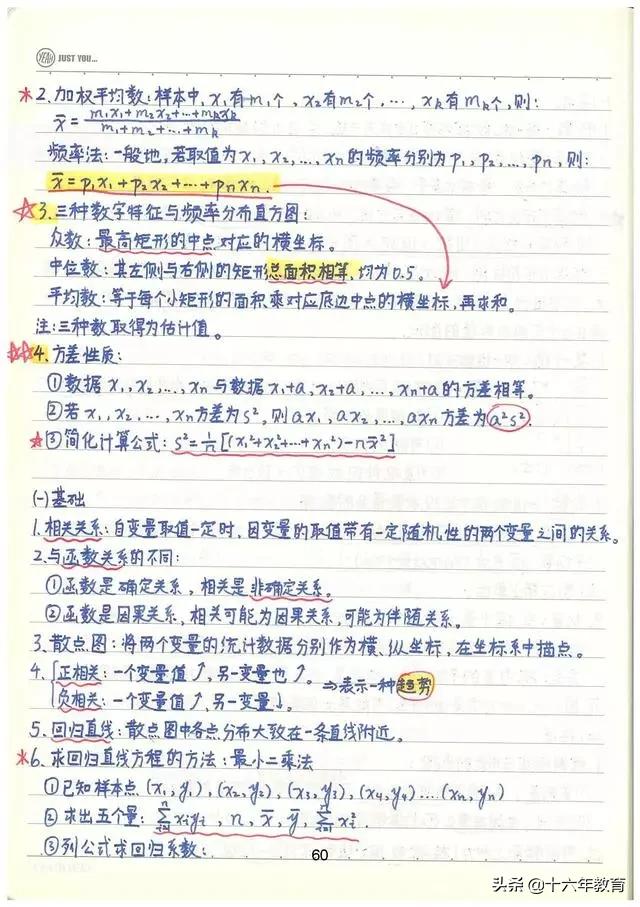 YEAH JUST YOU...
*2. 加权平均数: 样本中, x₁有m₁个, x₂有m₂个, …, xₖ有mₖ个, 则:
x̄ = (m₁x₁+m₂x₂+…+mₖxₖ)/(m₁+m₂+…+mₖ)
频率法: 一般地, 若取值为x₁, x₂, …, xₙ的频率分别为p₁, p₂, …, pₙ, 则:
x̄ = p₁x₁+p₂x₂+…+pₙxₙ.
☆3. 三种数字特征与频率分布直方图:
众数: 最高矩形的中点对应的横坐标。
中位数: 其左侧与右侧的矩形总面积相等, 均为0.5。
平均数: 等于每个小矩形的面积乘对应底边中点的横坐标, 再求和。
注: 三种数取得为估计值。
☆☆4. 方差性质:
①数据x₁, x₂, …, xₙ与数据x₁+a, x₂+a, …, xₙ+a的方差相等。
②若x₁, x₂, …, xₙ方差为s², 则ax₁, ax₂, …, axₙ方差为a²s².
★③简化计算公式: s²=1/n[(x₁²+x₂²+…+xₙ²)-nx̄²]
(一)基础
1. 相关关系: 自变量取值一定时, 因变量的取值带有一定随机性的两个变量之间的关系。
2. 与函数关系的不同:
①函数是确定关系, 相关是非确定关系。
②函数是因果关系, 相关可能为因果关系, 可能为伴随关系。
3. 散点图: 将两个变量的统计数据分别作为横、纵坐标, 在坐标系中描点。
4. {正相关: 一个变量值↑, 另一变量也↑。 ⇒表示一种趋势
负相关: 一个变量值↑, 另一变量↓。
5. 回归直线: 散点图中各点分布大致在一条直线附近。
*6. 求回归直线方程的方法: 最小二乘法
①已知样本点(x₁, y₁), (x₂, y₂), (x₃, y₃), (x₄, y₄)…(xₙ, yₙ)
②求出五个量: ∑ⁿᵢ₌₁xᵢyᵢ, n, x̄, ȳ, ∑ⁿᵢ₌₁xᵢ².
③列公式求回归系数:
60
头条 @十六年教育